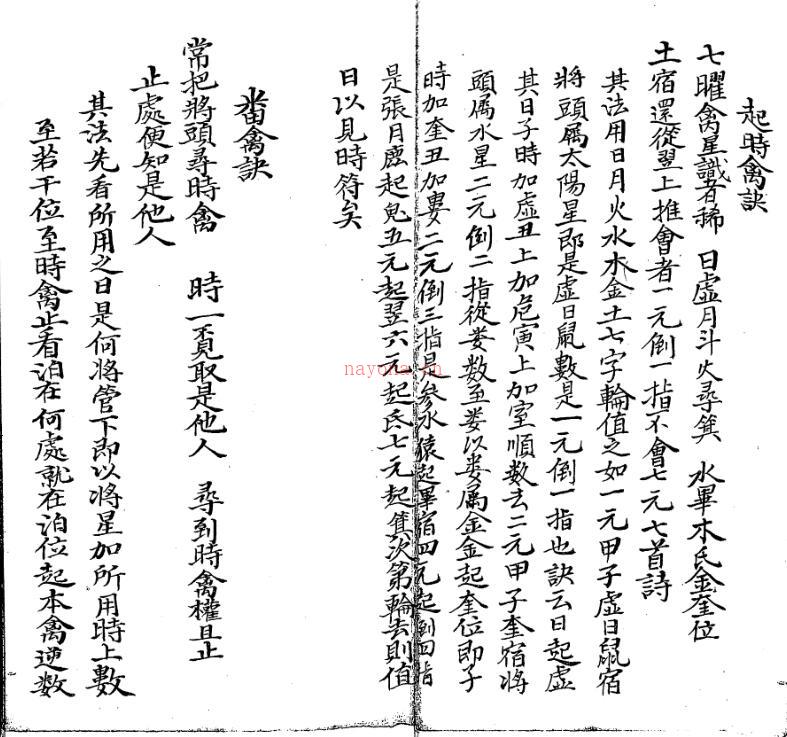 起時禽訣
七曜禽星識者稀 日虛月斗火尋箕 水畢木氐金奎位
土宿還從翌上推會者一元倒一指不會七元七首詩
其法用日月火水木金土七字輪值之如一元甲子虛日鼠宿
將頭屬太陽星即是虛日鼠數是一元倒一指也訣云日起虛
其日子時加虛丑上加危寅上加室順數去二元甲子奎宿將
頭屬水星二元倒二指從娄數至娄以娄屬金金起奎位即子
時加奎丑加婁二元倒三指是參水猿起畢宿四元起倒四指
是張月鹿起鬼五元起翌六元起氐七元起箕次第輪去則值
日以見時符矣
番禽訣
常把將頭尋時禽 時一覓取是他人 尋到時禽權且止
止處便知是他人
其法先看所用之日是何將管下即以將星加所用時上數
至若干位至時禽止看泊在何處就在泊位起本禽逆數
nayona.cn